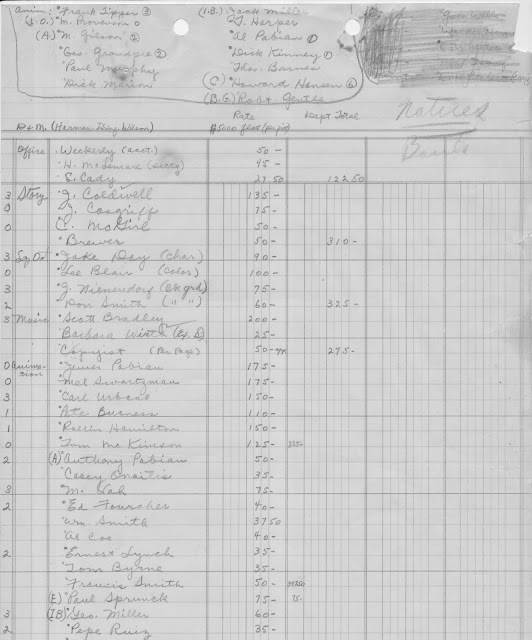 Anim: Frank Tipper ③
(I.O.) M. Provenson 0
(A.) M. Gilson ②
Geo. Grandpre ②
Paul Murphy
Dick Marion
(I.B.) Jack Miller
T. Harper
Al Pabian ①
Dick Kinney ①
Thos. Barnes
(C) Howard Hansen ⑥
(B.G.) Robt Gentle
Notices
Rate Dept Total
P & M. (Harman-Ising Wilson) $5000 flat
Office Weckerly (acct.) 50-
H. McLemare (secty) 45-
S. Cady 27 50 122 50
3 Story J. Coldwell 135-
0 J. Cosgriff 75-
0 C. McGirl 50-
Brewer 50- 310-
3 Jake Day (Char) 90-
0 Lee Blair (Color) 100-
3 J. Nienendorf (Bkgrd) 75-
2 Don Smith (" ") 60- 325-
3 Music Scott Bradley 200-
Barbara Wirth 25-
Copyist (Per Page) 50- 275-
0 Animation James Pabian 175-
0 Mel Swartzman 175-
3 Carl Urbano 150-
1 Pete Burness 110-
1 Rollin Hamilton 150-
0 Tom McKimson 125-
2 (A) Anthony Pabian 50-
Casey Onaitis 35-
3 M. Lah 75-
2 Ed Fourcher 40-
Wm. Smith 37 50
Al Coe 40-
2 Ernest Lynch 35-
Tom Byrne 35-
Francis Smith 50-
(E) Paul Sprunck 75- 75-
3 (IB) Geo. Miller 60-
2 Pepe Ruiz 35-